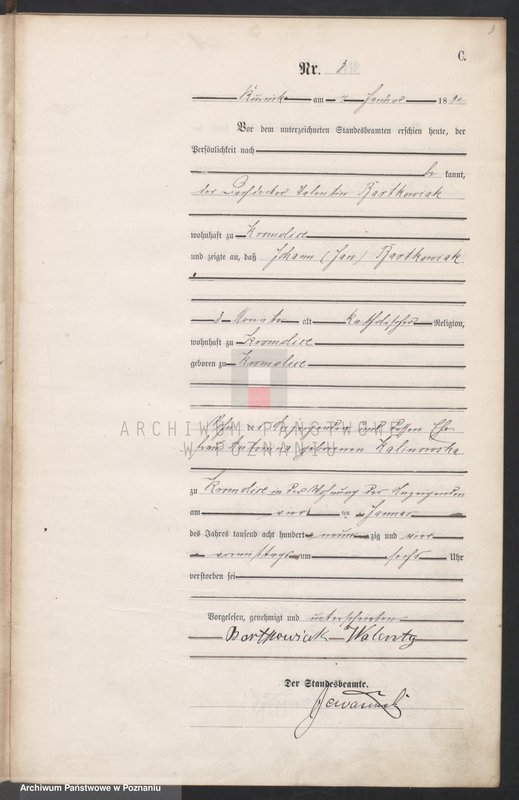 C.
Nr. 3
Kurnik am 4 Januar 1894
Vor dem unterzeichneten Standesbeamten erschien heute, der
Persönlichkeit nach
be kannt,
der Valentin Bartkowiak
wohnhaft zu Kromolice
und zeigte an, daß Johann (Jan) Bartkowiak
3 Monate alt katholischer Religion,
wohnhaft zu Kromolice
geboren zu Kromolice
Sohn des Anzeigenden und dessen Ehe
frau geborenen Kalinowska
ARCHIWUM PAŃSTWOWE
W POZNANIU
zu Kromolice in der Wohnung des Anzeigenden
am vier ten Januar
des Jahres tausend acht hundert neun zig und vier
vormittags um sechs Uhr
verstorben sei
Vorgelesen, genehmigt und unterschrieben
Bartkowiak Walenty
Der Standesbeamte.
Archiwum Państwowe w Poznaniu